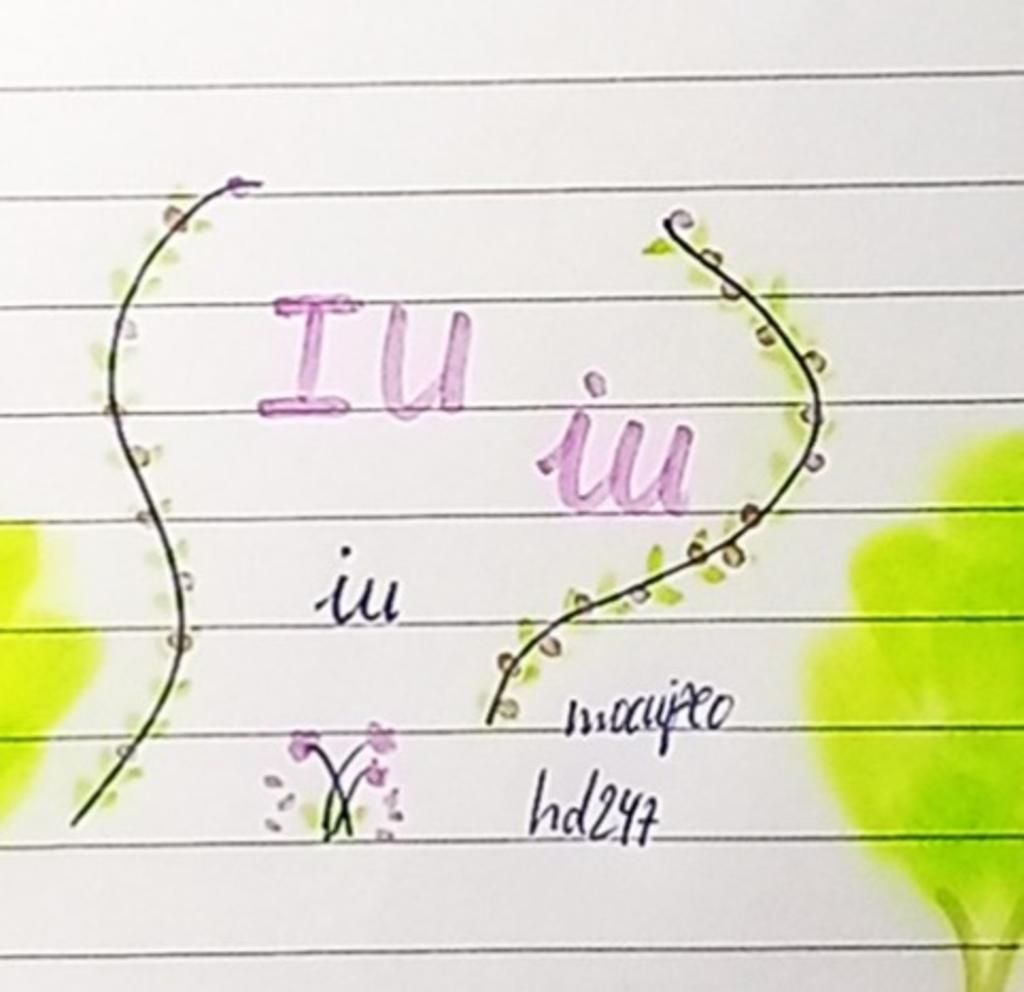 IU
iu
iu
hd247